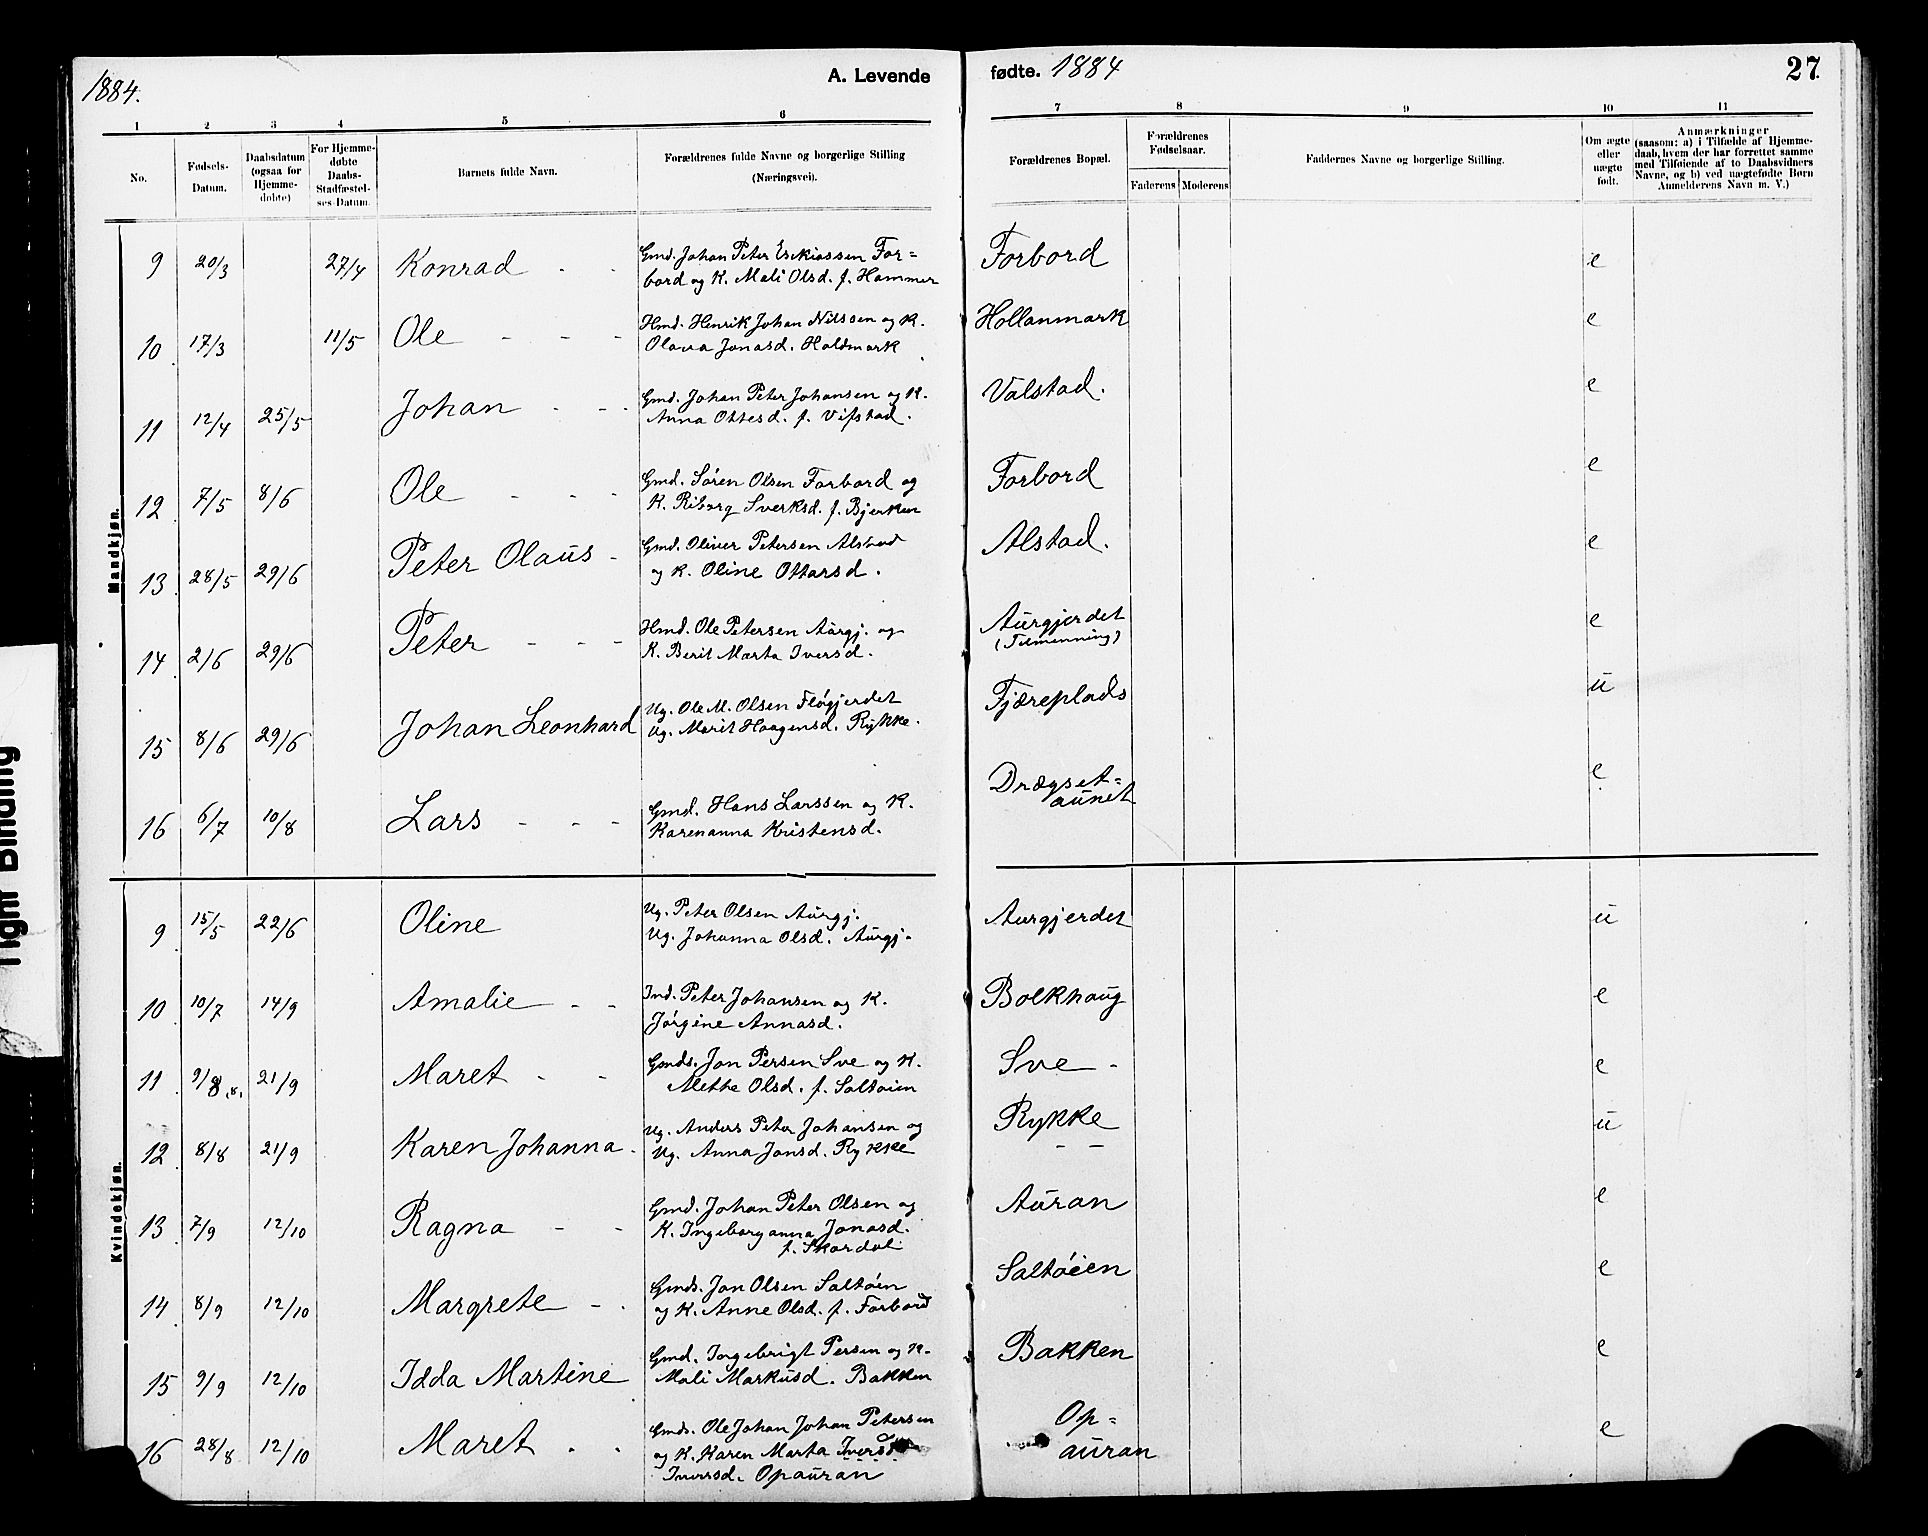 1884.
A. Levende
fødte. 1884
27
1 2 3 4 5 6 7 8 9 10 11
No.
Fødsels-
Datum.
Daabsdatum
(ogsaa for
Hjemme-
døbte)
For Hjemme-
døbte
Daabs-
Stadfæstel-
ses-Datum.
Barnets fulde Navn.
Forældrenes fulde Navne og borgerlige Stilling
(Næringsvei).
Forældrenes Bopæl.
Forældrenes
Fødselsaar.
Faderens Moderens
Faddernes Navne og borgerlige Stilling.
Om ægte
eller
uægte
født.
Anmærkninger
(saasom: a) i Tilfælde af Hjemme-
daab, hvem der har forrettet samme
med Tilføiende af to Daabsvidners
Navne, og b) ved uægtefødte Børn
Anmelderens Navn m. V.)
Mandkjøn.
9 20/3 27/4 Konrad - - Gmd. Johan Peter Eskiassen For= Forbord e
bord og K. Mali Olsd. f. Hammer
10 17/3 11/5 Ole - - - Hmd. Henrik Johan Nilssen og K. Hollanmark e
Olava Jonasd. Holdmark
11 12/4 25/5 Johan - - - Gmd. Johan Peter Johansen og K. Valstad. e
Anna Ottesd. f. Vifstad.
12 7/5 8/6 Ole - - - Gmd. Sören Olsen Forbord og Forbord e
K. Riborg Sverksd. f. Bjerken
13 28/5 29/6 Peter Olaus - Gmd. Oliver Petersen Alstad Alstad. e
og K. Oline Ottarsd.
14 2/6 29/6 Peter - - - Hmd. Ole Petersen Aurgj. og Aurgjerdet e
K. Berit Marta Iversd. (Tilmenning)
15 8/6 29/6 Johan Leonhard Ug. Ole M. Olsen Fløgjerdet Fjæreplads u
Ug. Marit Haagensd. Rykke.
16 6/7 10/8 Lars - - - Gmd. Hans Larssen og K. Drægset= e
Karenanna Kristensd. aunet
Kvindekjøn.
9 15/5 22/6 Oline Ug. Peter Olsen Aurgj. Aurgjerdet u
Ug. Johanna Olsd. Aurgj.
10 10/7 14/9 Amalie - - Ind. Peter Johansen og K. Bolkhaug e
Jörgine Annasd.
11 9/8 .8. 21/9 Maret - - Gmds. Jon Persen Sve og K. Sve - e
Methe Olsd. f. Saltøien
12 8/8 21/9 Karen Johanna. Ug. Anders Peter Johansen og Rykke u
Ug. Anna Jonsd. Rykke - -
13 7/9 12/10 Ragna - - Gmd. Johan Peter Olsen og Auran e
K. Ingeborganna Jonasd.
f. Skardal
14 8/9 12/10 Margrete - . Gmds. Jon Olsen Saltöien Saltöien e
og K. Anne Olsd. f. Forbord
15 9/9 12/10 Idda Martine Gmd. Ingebrigt Persen og K. Bakken e
Mali Markusd. Bakken
16 28/8 12/10 Maret . . Gmds. Ole Johan Johan Petersen Op= e
og K. Karen Marta Iversd auran
Iversd. Opauran
Tight Binding